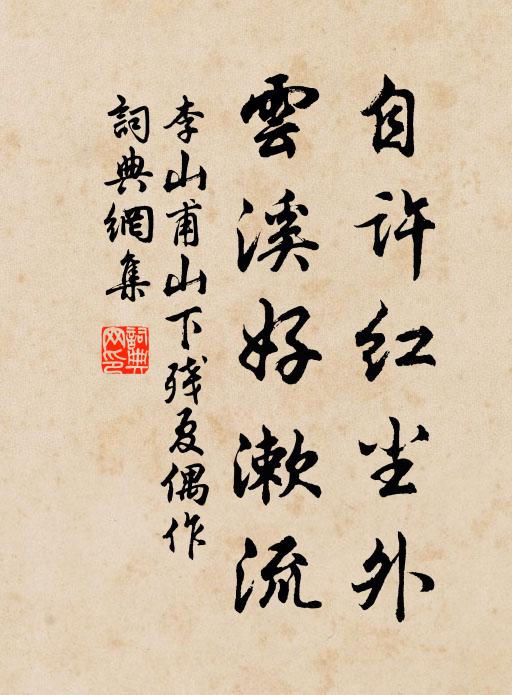 自许红尘外
雲溪好漱流
李山甫山下残夏偶作
詞典網集
詞典網印